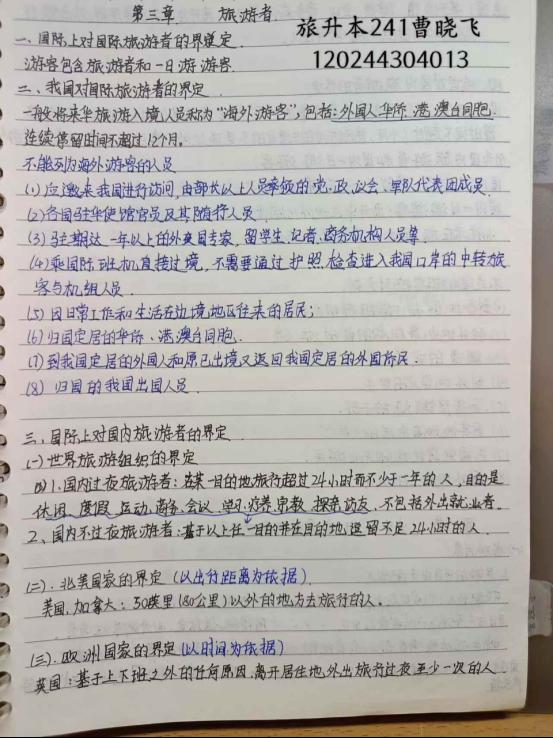 第三章 旅游者
旅升本241曹晓飞
120244304013
一、国际上对国际旅游者的界定
游客包含旅游者和一日游游客.
二、我国对国际旅游者的界定
一般将来华旅游入境人员称为“海外游客”,包括:外国人华侨 港 澳台同胞.
连续停留时间不超过12个月.
不能列为海外游客的人员
(1)应邀来我国进行访问,由部长以上人员率领的党、政、议会、军队代表团成员
(2)各国驻华使馆官员及其随行人员
(3)驻期达一年以上的外国专家,留学生、记者、商务机构人员等
(4)乘国际班机直接过境,不需要通过护照检查进入我国口岸的中转旅
客与机组人员
(5)因日常工作和生活在边境地区往来的居民;
(6)归国定居的华侨、港、澳台同胞.
(7)到我国定居的外国人和原已出境又返回我国定居的外国侨民.
(8)归国的我国出国人员.
三、国际上对国内旅游者的界定
(一)世界旅游组织的界定
1.国内过夜旅游者:在某一目的地旅行超过24小时而不少于一年的人,目的是
休闲、度假、运动、商务、会议、学习、疗养、宗教、探亲访友、不包括外出就业者.
2、国内不过夜旅游者:基于以上任一目的并在目的地逗留不足24小时的人.
(二).北美国家的界定(以出行距离为依据).
美国.加拿大:50英里(80公里)以外的地方去旅行的人。
(三).欧洲国家的界定(以时间为依据)
英国:基于上下班之外的任何原因,离开居住地外出旅行过夜至少一次的人